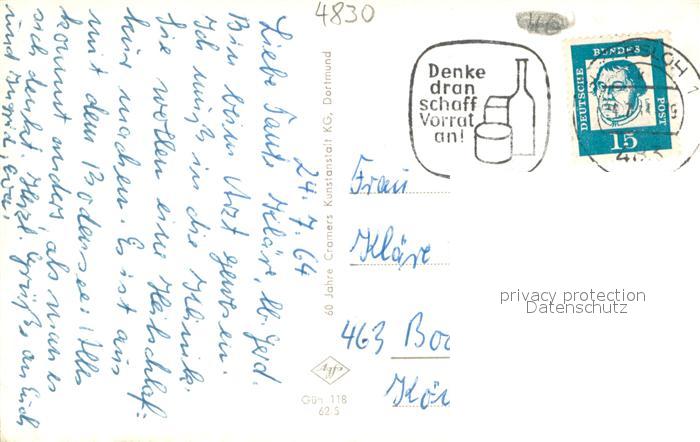 4830
Denke
dran
schaff
Vorrat
an!
DEUTSCHE
BUNDES
POST
15
24.7.64
Liebe Tante Kläre, lb. Gerd.
Bin beim Arzt gewesen.
Ich muß in die Klinik.
Sie wollen eine Heilschlaf-
kur machen. Es ist aus
mit dem Bodensee! Alles
kommt anders, als man es
sich denkt. Herzl. Grüße an Euch
und Ingrid, Eva
60 Jahre Cramers Kunstanstalt KG, Dortmund
Frau
Kläre
463 Boc
Kön
Güh 118
62 S
privacy protection
Datenschutz